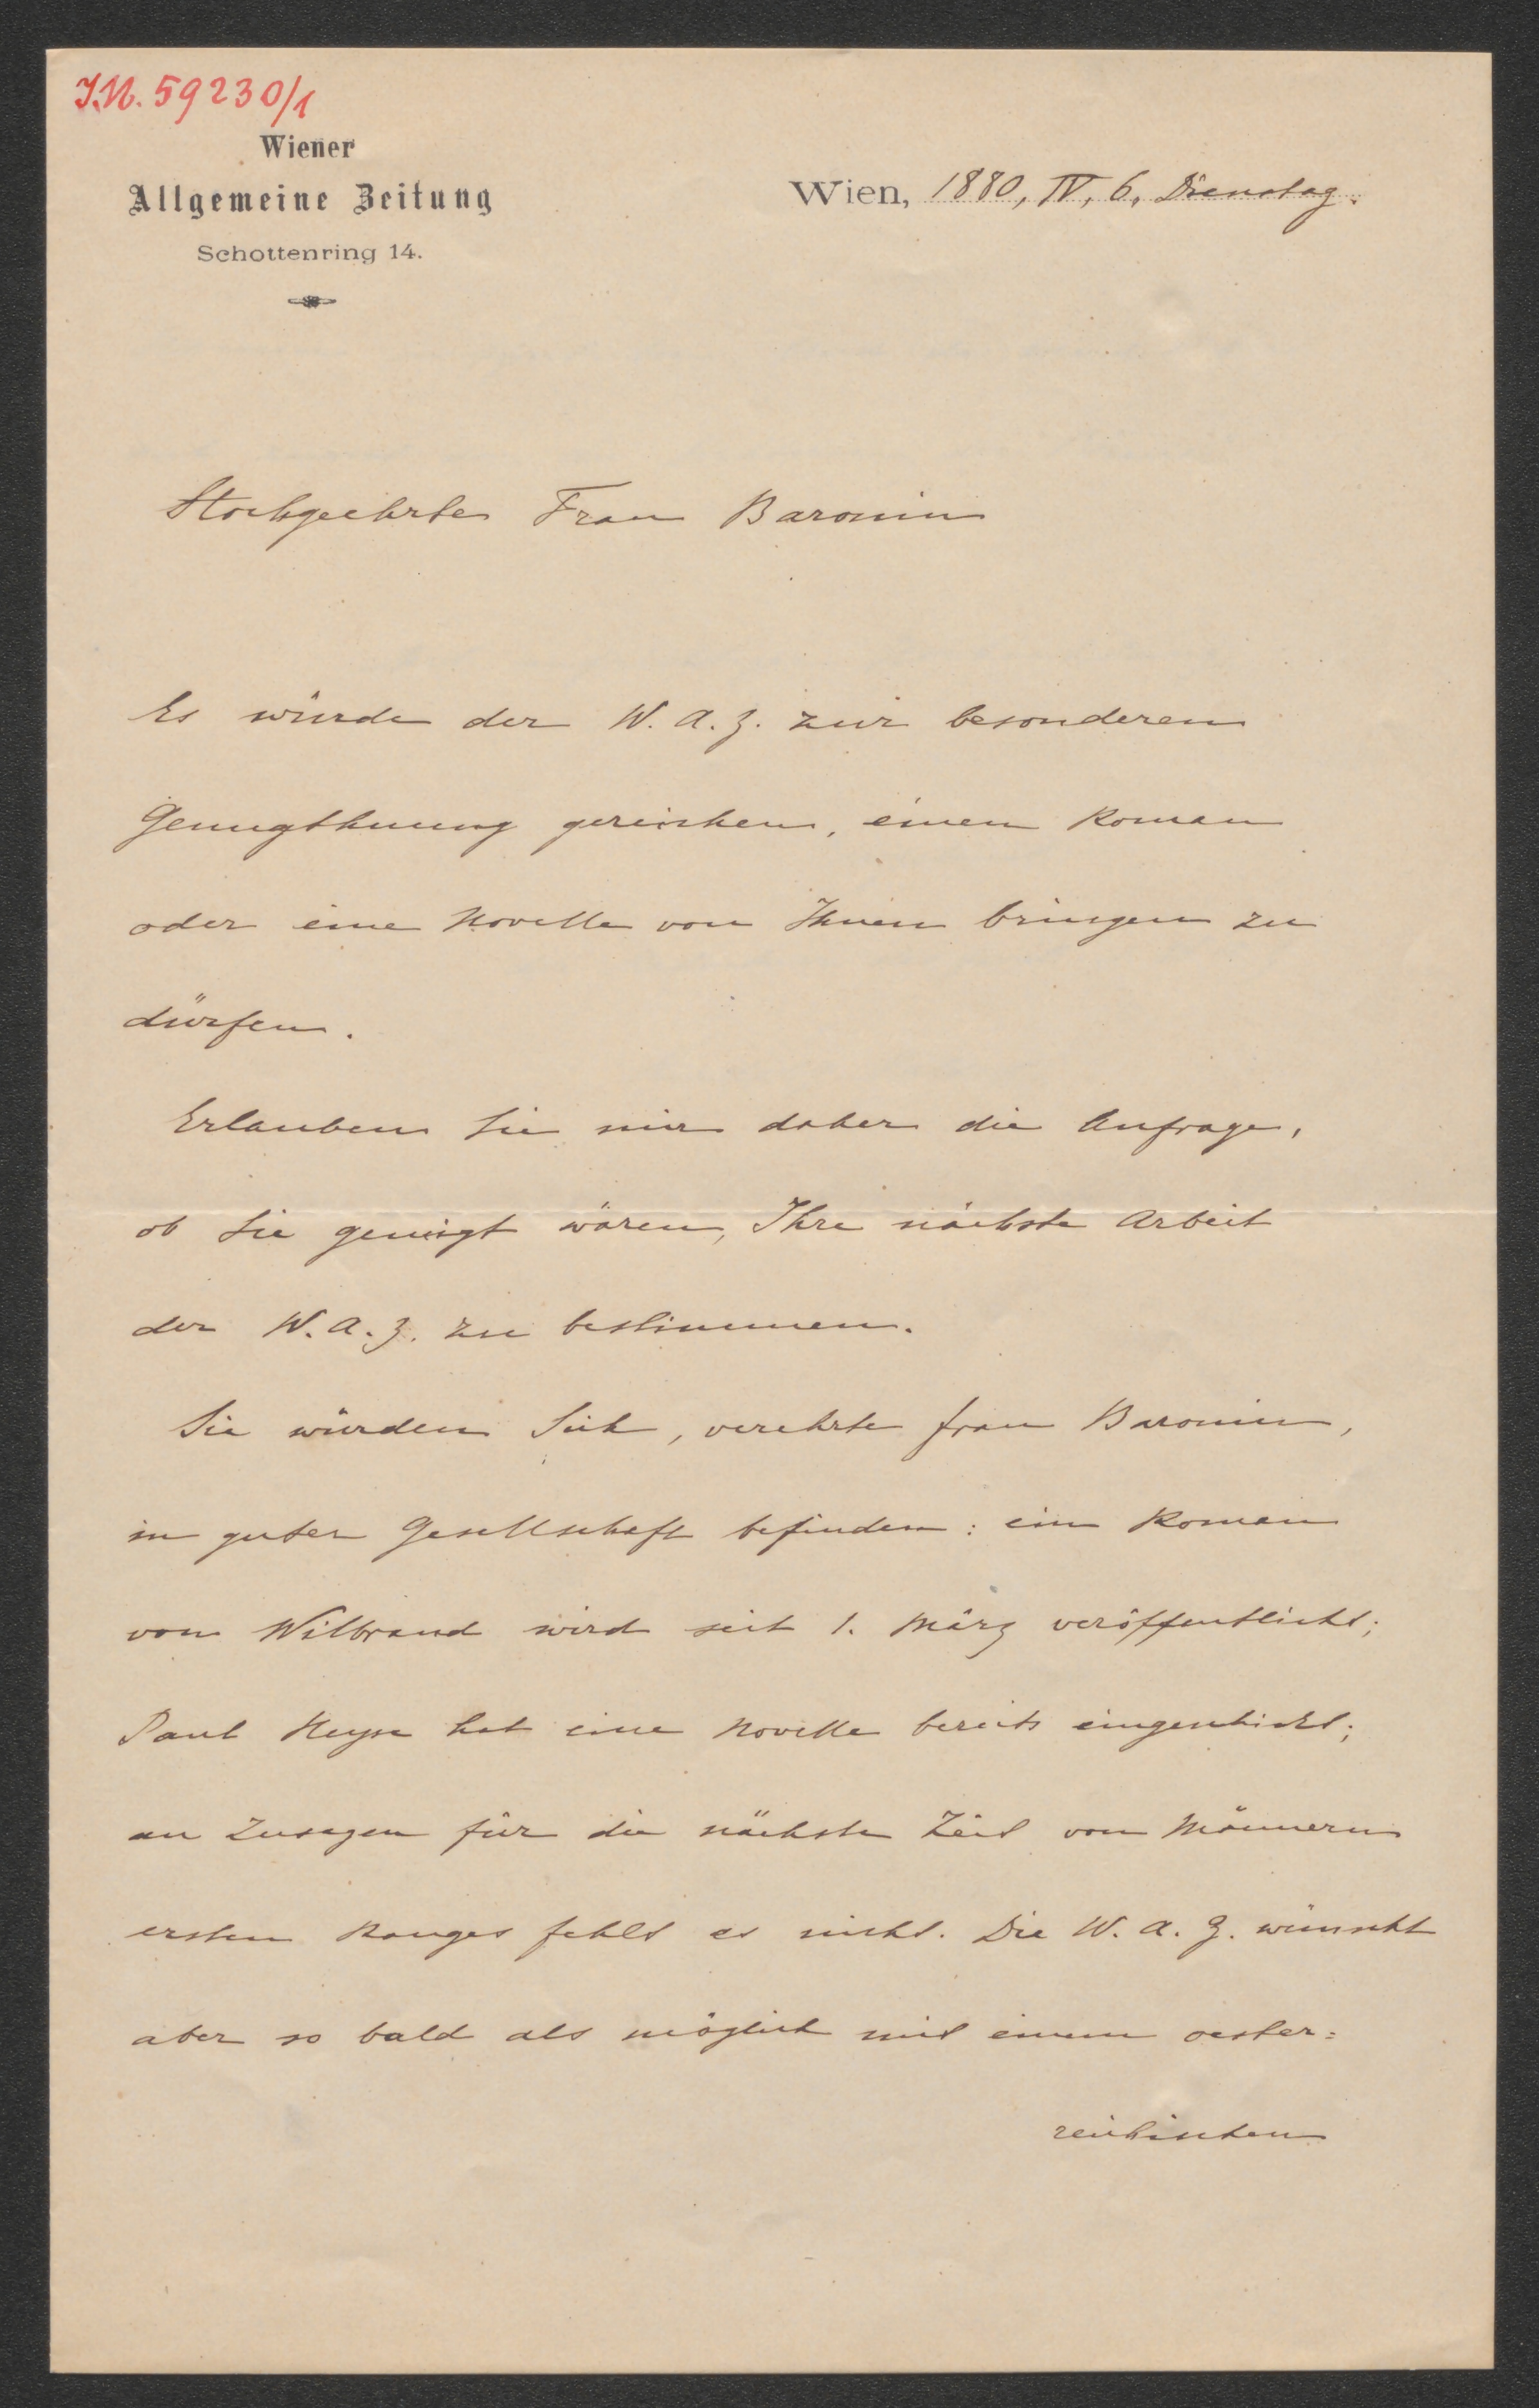 I.N. 59230/1
Wiener
Allgemeine Zeitung
Schottenring 14.
Wien, 1880, IV, 6, Dienstag.
Hochgeehrte Frau Baronin
Es würde der W. A. Z. zur besonderen
Genugthuung gereichen, einen Roman
oder eine Novelle von Ihnen bringen zu
dürfen.
Erlauben Sie mir daher die Anfrage,
ob Sie geneigt wären, Ihre nächste Arbeit
der W. A. Z. zu bestimmen.
Sie würden Sich, verehrte Frau Baronin,
in guter Gesellschaft befinden: ein Roman
von Wilbrand wird seit 1. März veröffentlicht;
Paul Heyse hat eine Novelle bereits eingeschickt;
an Zusagen für die nächste Zeit von Männern
ersten Ranges fehlt es nicht. Die W. A. Z. wünscht
aber so bald als möglich mit einem oester=
reichischen